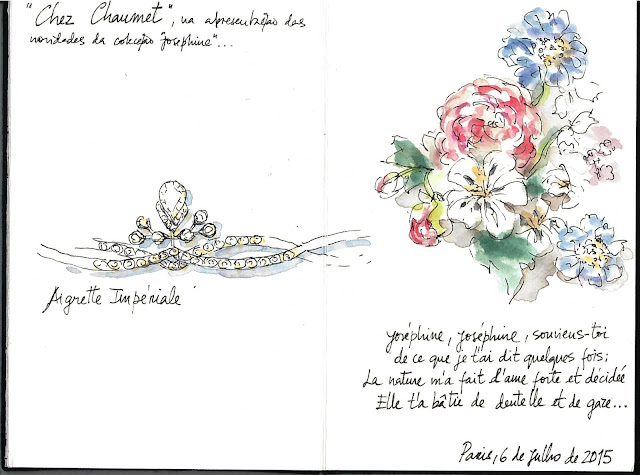 "Chez Chaumet", na apresentação das
novidades da colecção "Joséphine"...
Aigrette Impériale
Joséphine, Joséphine, souviens-toi
de ce que je t'ai dit quelques fois;
La nature m'a fait l'ame forte et décidée
Elle t'a bâtie de dentelle et de gaze...
Paris, 6 de Julho de 2015